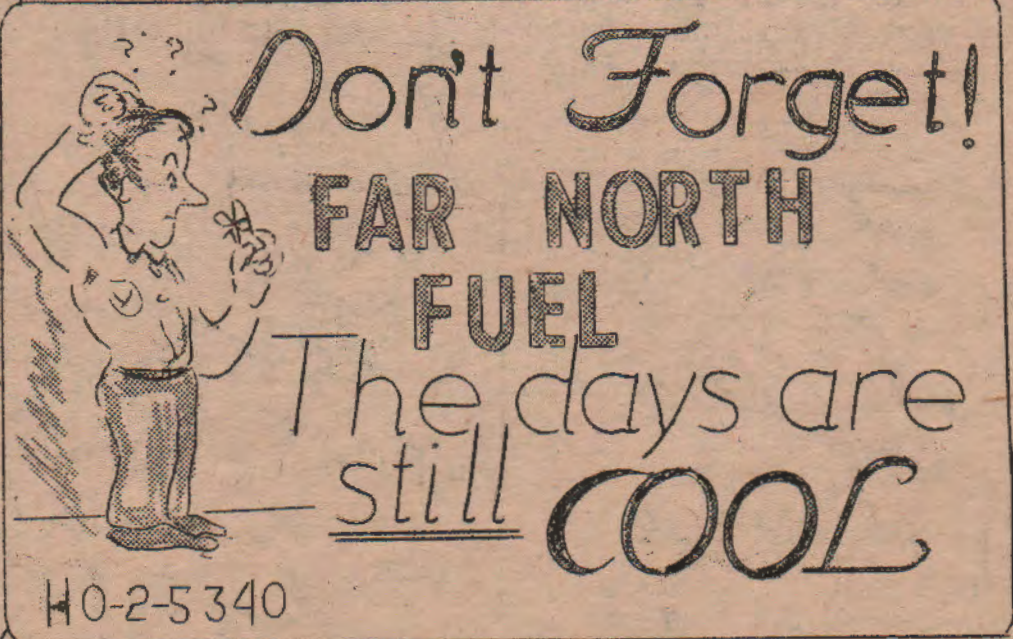 ? ?
?
Don't Forget!
FAR NORTH
FUEL
The days are
still COOL
HO-2-5340